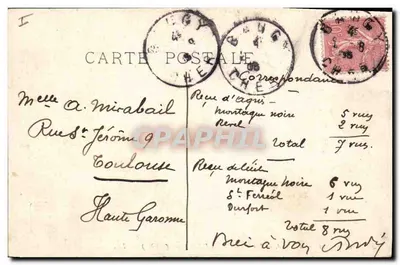 I
BAUGY
CHER
BAUGY
CHER
BAUGY
CHER
CARTE POSTALE
Correspondance
Melle A. Mirabail
Rue St Jérôme 9
Toulouse
Haute Garonne
Reçu d'Agnès
Montagne noire 5 vues
Revel 2 vues
Total 7 vues
Reçu de
Montagne Noire 6 vues
St Ferréol 1 vue
Durfort 1 vue
Total 8 vues
Bien à vous André